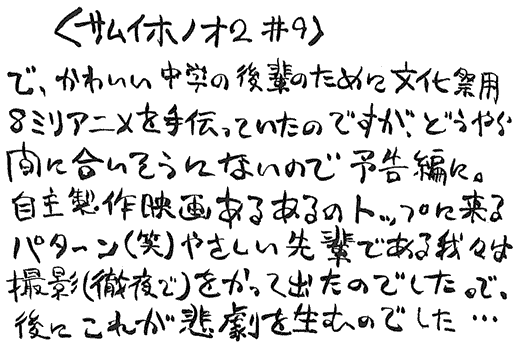 〈サムイホノオ2 #9〉
で、かわいい中学の後輩のために文化祭用
8ミリアニメを手伝っていたのですが、どうやら
間に合いそうにないので予告編に。
自主製作映画あるあるのトップに来る
パターン(笑)やさしい先輩である我々は
撮影(徹夜で)をかって出たのでした。で、
後にこれが悲劇を生むのでした…